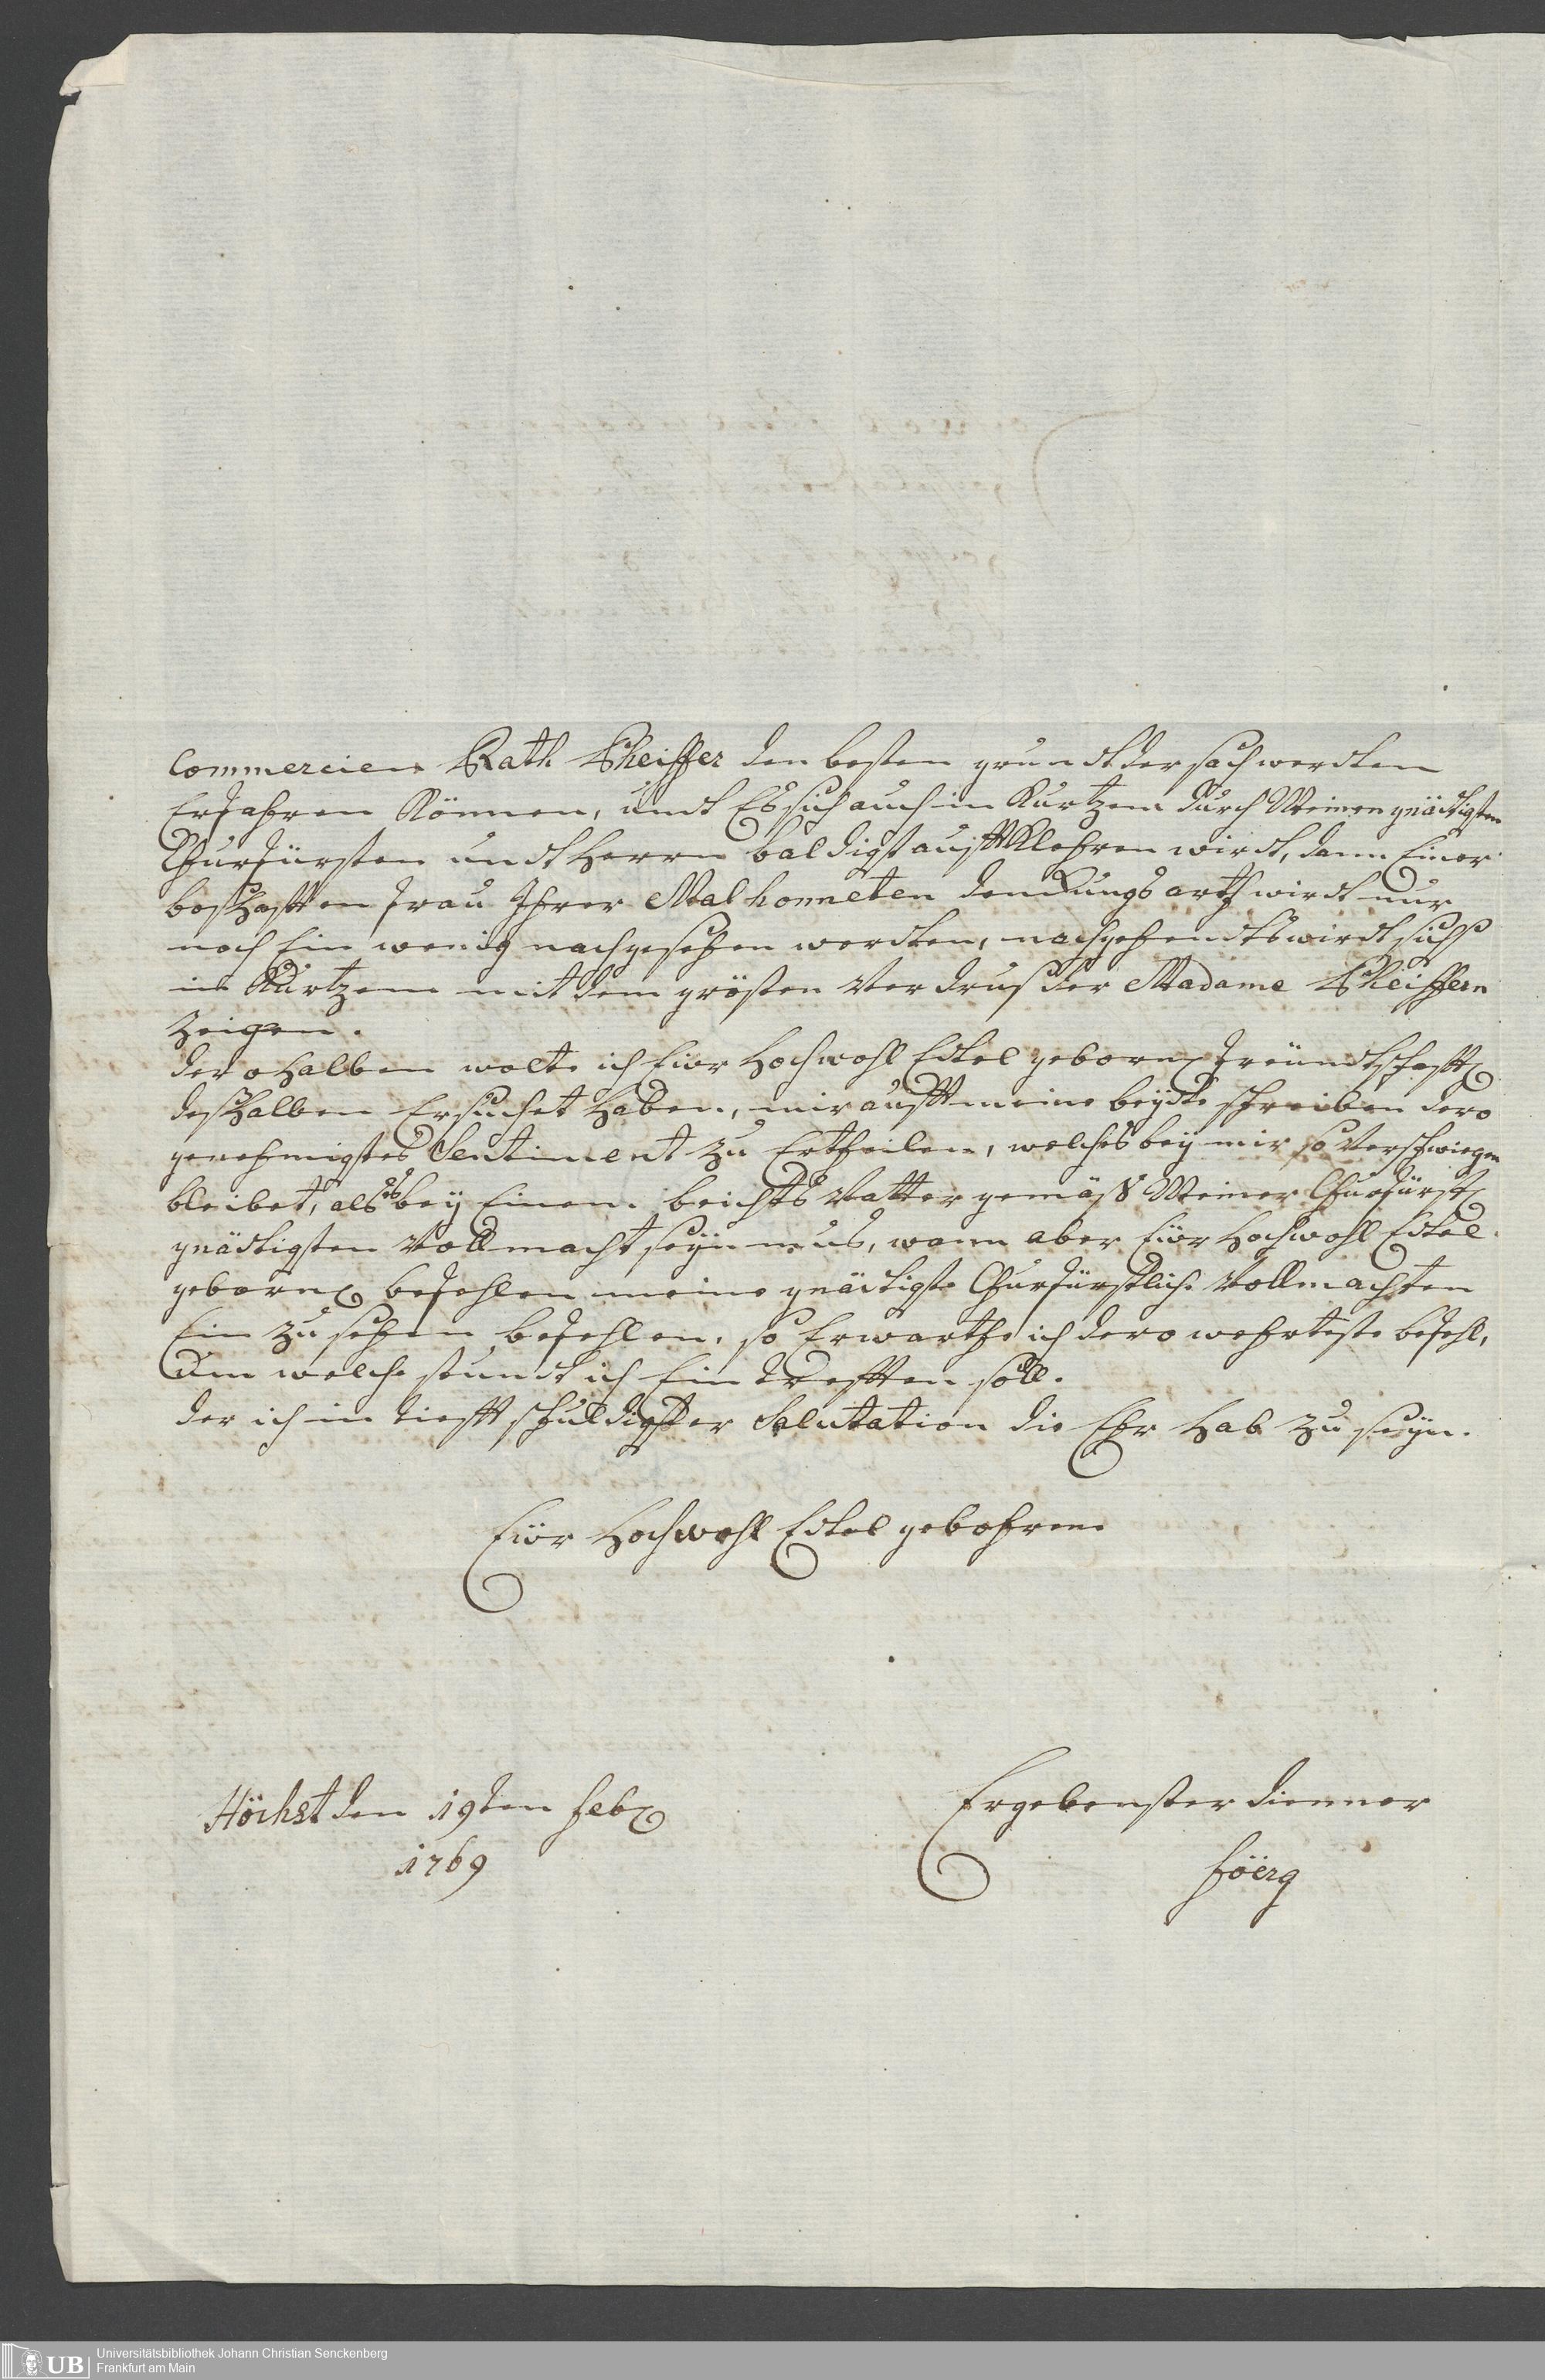 Commercien Rath Pheiffer den besten grundt der sach werdten
Erfahren Können, undt Es sich auch in Kurtzem durch Meinen gnädtigsten
Churfürsten undt Herrn baldigst aufftklehren wirdt, dann Einer
boshafften frau Ihrer Malhonneten denckungs arth wirdt nur
noch Ein wenig nachgesehen werdten, nachgehendts wirdt sichs
in Kurtzem mit dem grösten Verdruß der Madame Pheiffern
Zeigen.
derohalben wolte ich Eüer Hochwohl Edtel geborne freündtschafft
deßhalben Ersuchet haben, mir aufft meine beydte schreiben dero
genehmigstes Sentiment zu Ertheilen, welches bey mir so Verschwiegen
bleibet, als es bey Einem beichts Vatter gemäß Meiner Churfürstl
gnädtigsten Vollmacht seyn mus, wann aber Eüer Hochwohl Edtel
geborne befehlen meine gnädtigste Churfürstliche Vollmachten
Ein zu sehen befehlen, so Erwarthe ich dero wehrteste befehl,
Um welche stundt ich Eintrefften soll.
der ich in tiefft schuldigster Salutation die Ehr hab zu seyn.
Eüer Hochwohl Edtel gebohrene
Höchst den 19ten feb
1769
Ergebenster dienner
föerg
UB Universitätsbibliothek Johann Christian Senckenberg
Frankfurt am Main